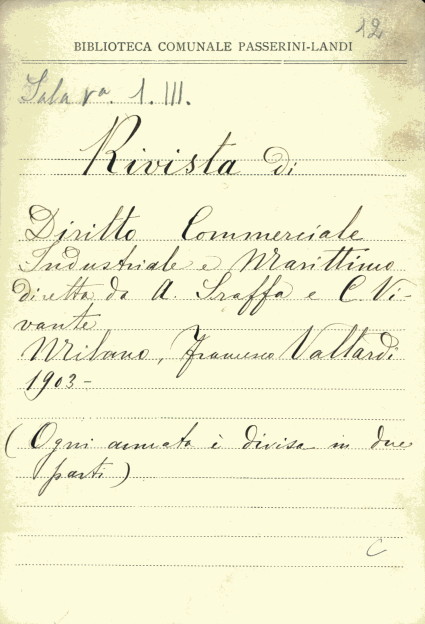 12
BIBLIOTECA COMUNALE PASSERINI-LANDI
Sala Va. 1. III.
Rivista di
Diritto Commerciale
Industriale e Marittimo
diretta da A. Sraffa e C. Vi-
vante
Milano, Francesco Vallardi
1903-
(Ogni annata è divisa in due
parti)
C